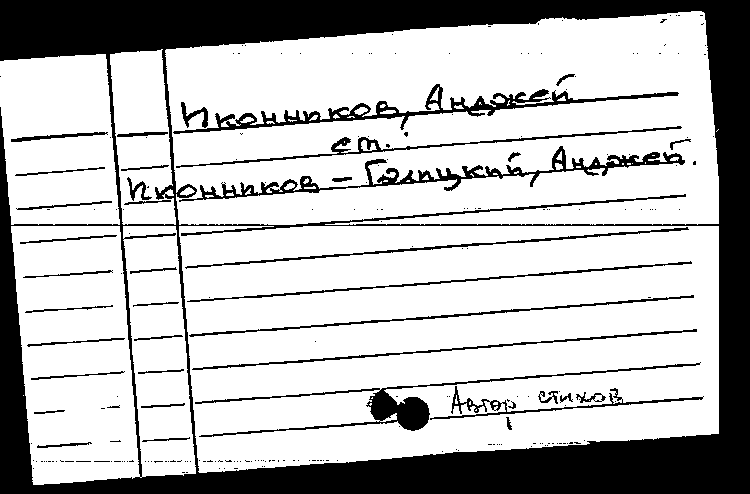 Иконников, Анджей
см.:
Иконников – Галицкий, Анджей.
Автор стихов